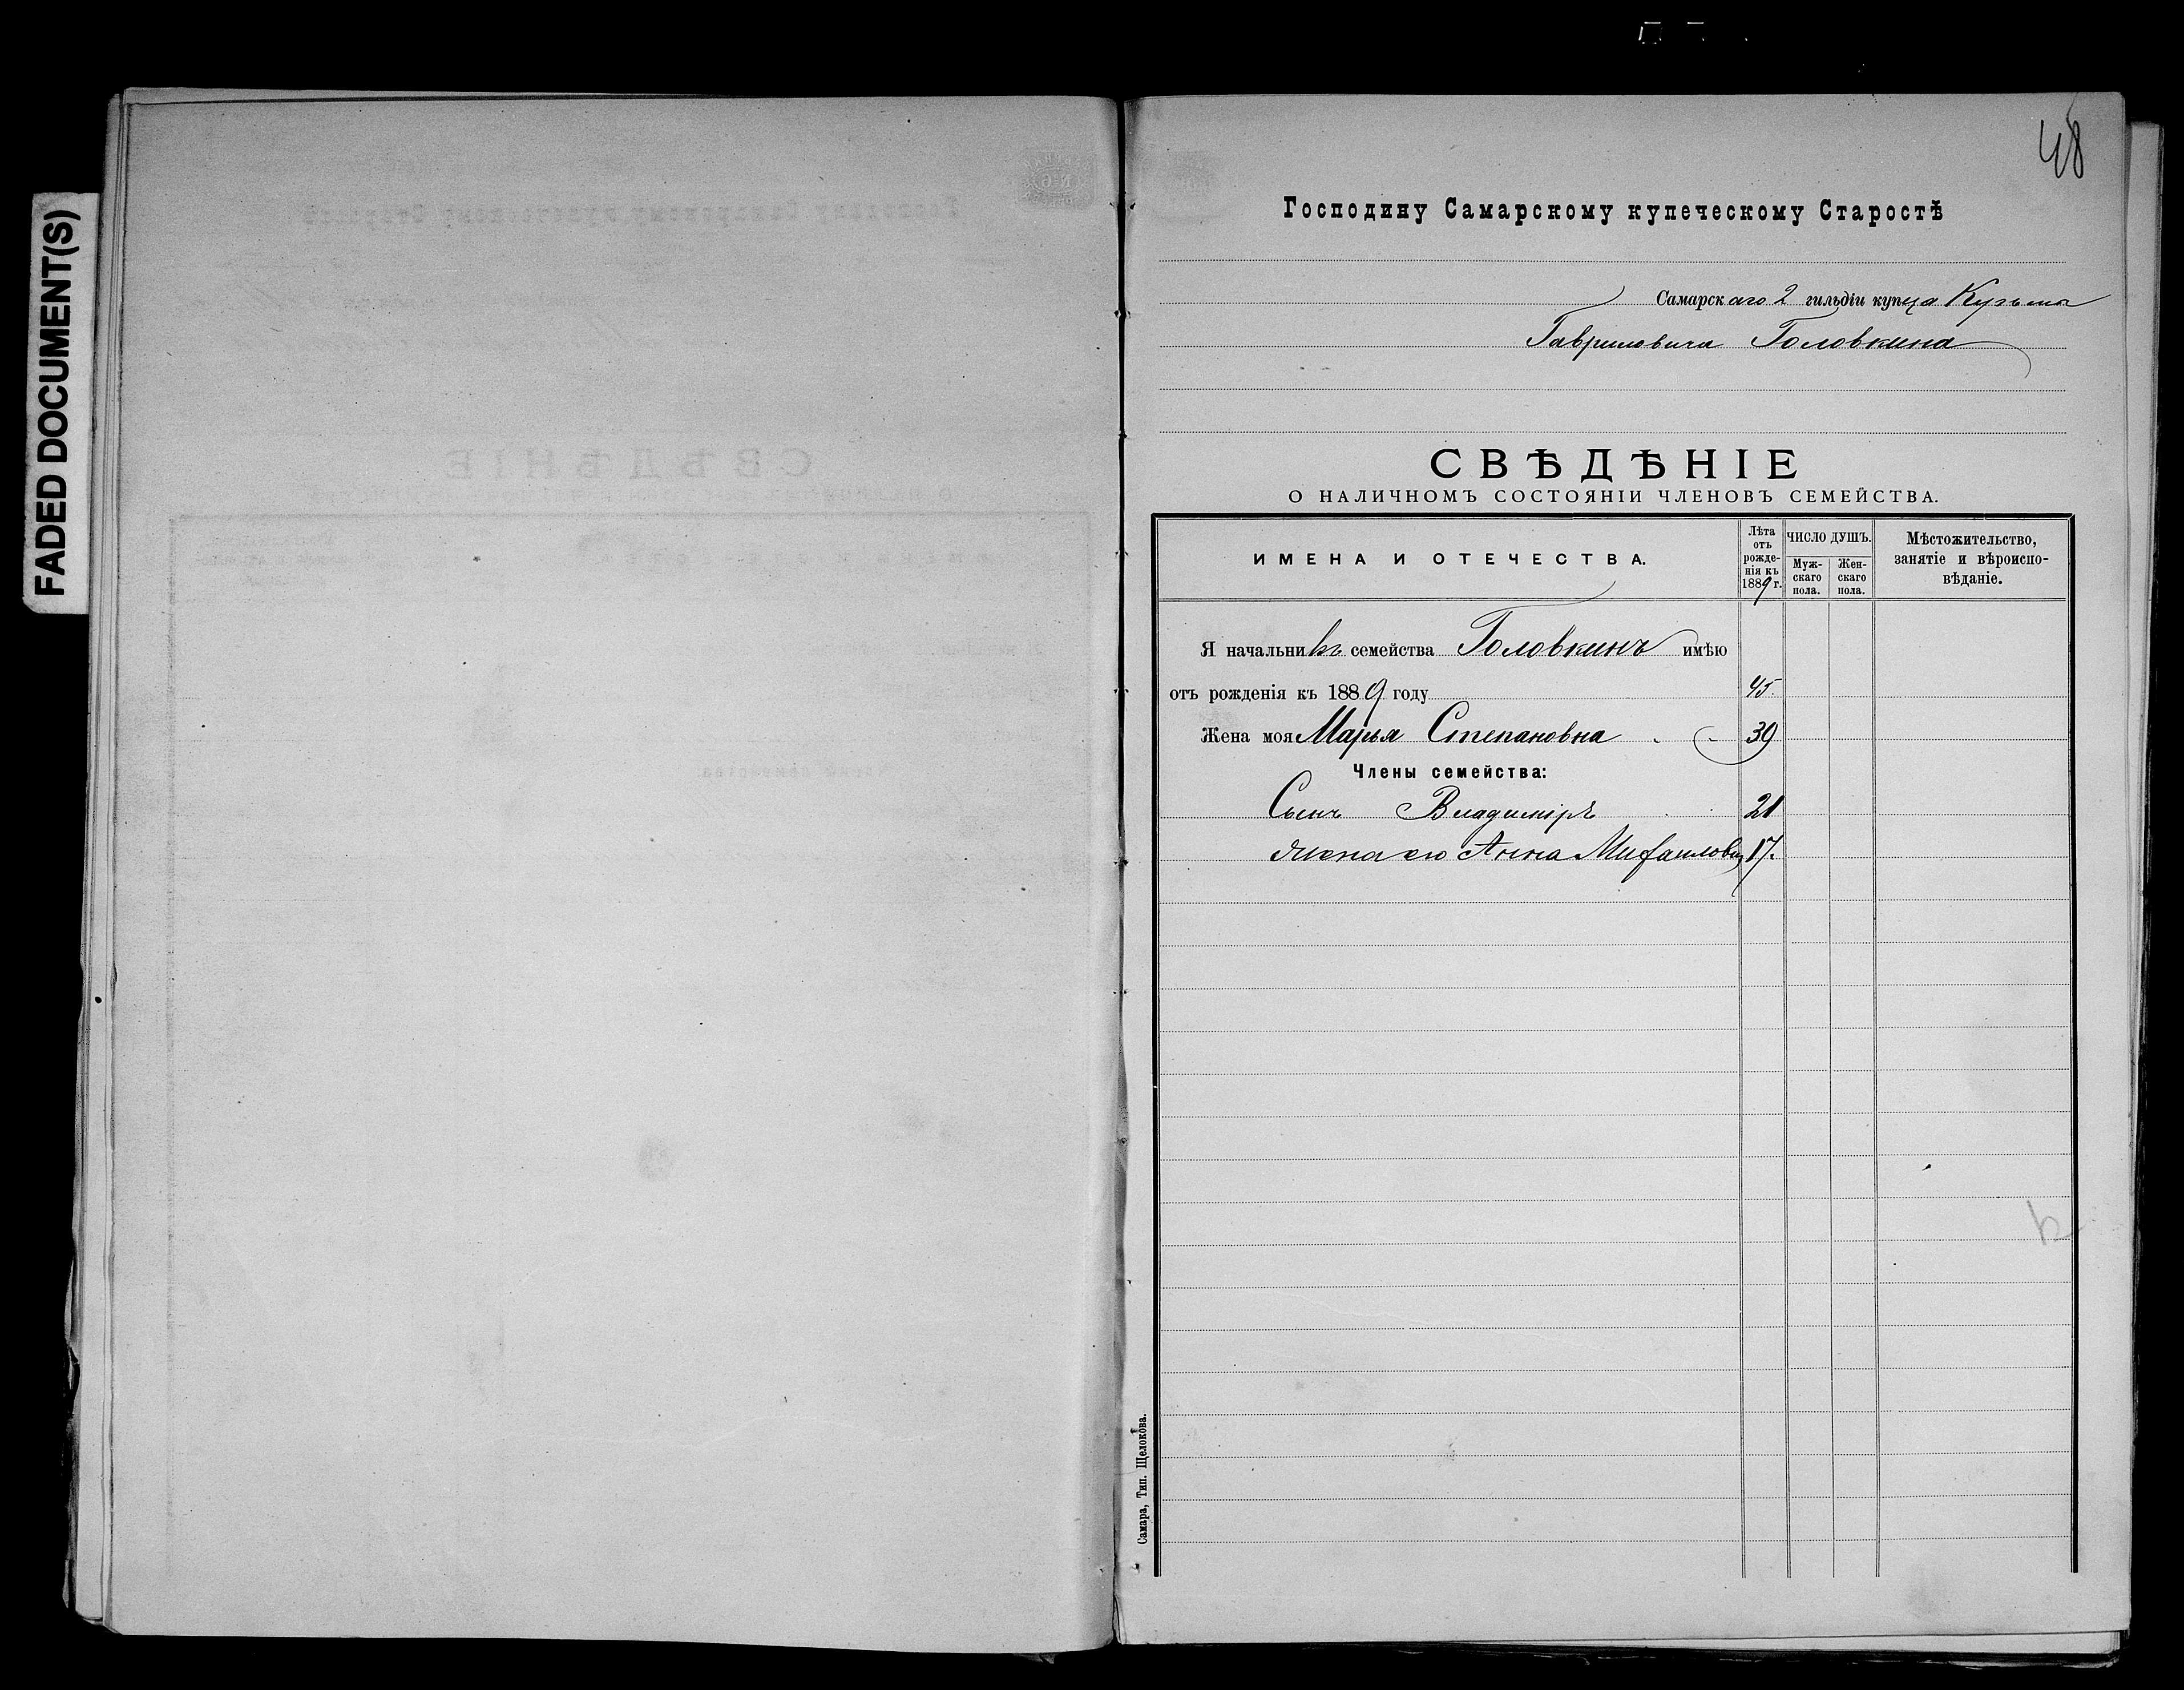 FADED DOCUMENT(S)
48
Господину Самарскому купеческому Старостѣ
Самарскаго 2 гильдіи купца Кузьма
Гавриловича Головкина
СВѢДѢНІЕ
О НАЛИЧНОМЪ СОСТОЯНІИ ЧЛЕНОВЪ СЕМЕЙСТВА.
ИМЕНА И ОТЕЧЕСТВА.
Лѣта отъ рожде- нія къ 1889 г.
ЧИСЛО ДУШЪ.
Муж- скаго пола.
Жен- скаго пола.
Мѣстожительство, занятіе и вѣроиспо- вѣданіе.
Я начальникъ семейства Головкинъ имѣю
отъ рожденія къ 1889 году 45.
Жена моя Марья Степановна 39
Члены семейства:
Сынъ Владиміръ 21
жена ею Анна Михаиловн 17.
Самара, Тип. Щелокова.